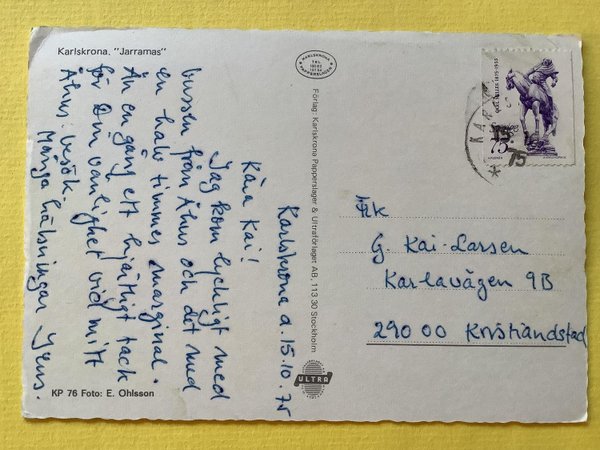 Karlskrona. "Jarramas"
Karlskrona d. 15.10.75
Kära Kai!
Jag kom lyckligt med
bussen från Åhus och det med
en halv timmes marginal.
Än en gång ett hjärtligt tack
för Din vänlighet vid mitt
Åhus-besök.
Många hälsningar Jens.
KP 76 Foto: E. Ohlsson
KARLSKRONA
PAPPERSLAGER
Förlag: Karlskrona Papperslager & Ultraförlaget AB, 113 30 Stockholm
ULTRA
CARL MILLES 1875-1955
Sverige
75
KARL
15
75
G. Kai-Larsen
Karlavägen 9B
290 00 Kristianstad